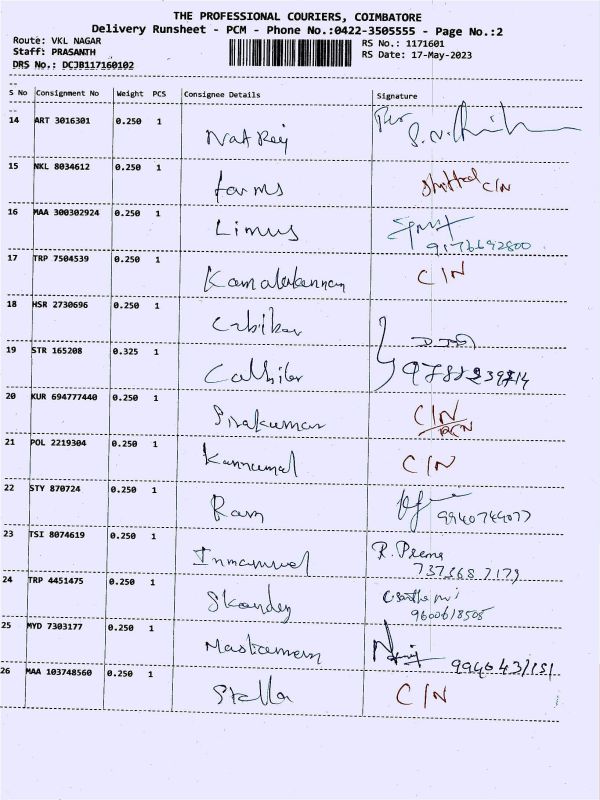 THE PROFESSIONAL COURIERS, COIMBATORE
Delivery Runsheet - PCM - Phone No.:0422-3505555 - Page No.:2
Route: VKL NAGAR
Staff: PRASANTH
DRS No.: DCJB117160102
RS No.: 1171601
RS Date: 17-May-2023
S No Consignment No Weight PCS Consignee Details Signature
14 ART 3016301 0.250 1 Nat Raj
15 NKL 8034612 0.250 1 farms Shifted C/N
16 MAA 300302924 0.250 1 Limus 9176692800
17 TRP 7504539 0.250 1 Kamalakannan C/N
18 HSR 2730696 0.250 1
19 STR 165208 0.325 1
20 KUR 694777440 0.250 1 Sivakumar C/N
21 POL 2219304 0.250 1 Kannumal C/N
22 STY 870724 0.250 1 Ram 9940744077
23 TSI 8074619 0.250 1 Immanuvel R. Prema
7373687179
24 TRP 4451475 0.250 1 Skandey
9600618505
25 MYD 7303177 0.250 1
26 MAA 103748560 0.250 1 Stella C/N